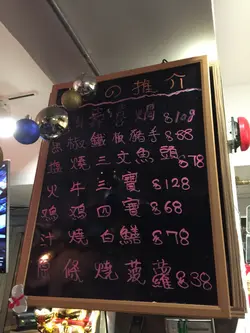 の推介
鍋 $108
椒鐵板豬手 $88
塩燒三文魚頭 $78
火牛三寶 $128
鷄四寶 $68
汁燒白鱔 $78
原條燒菠蘿 $38